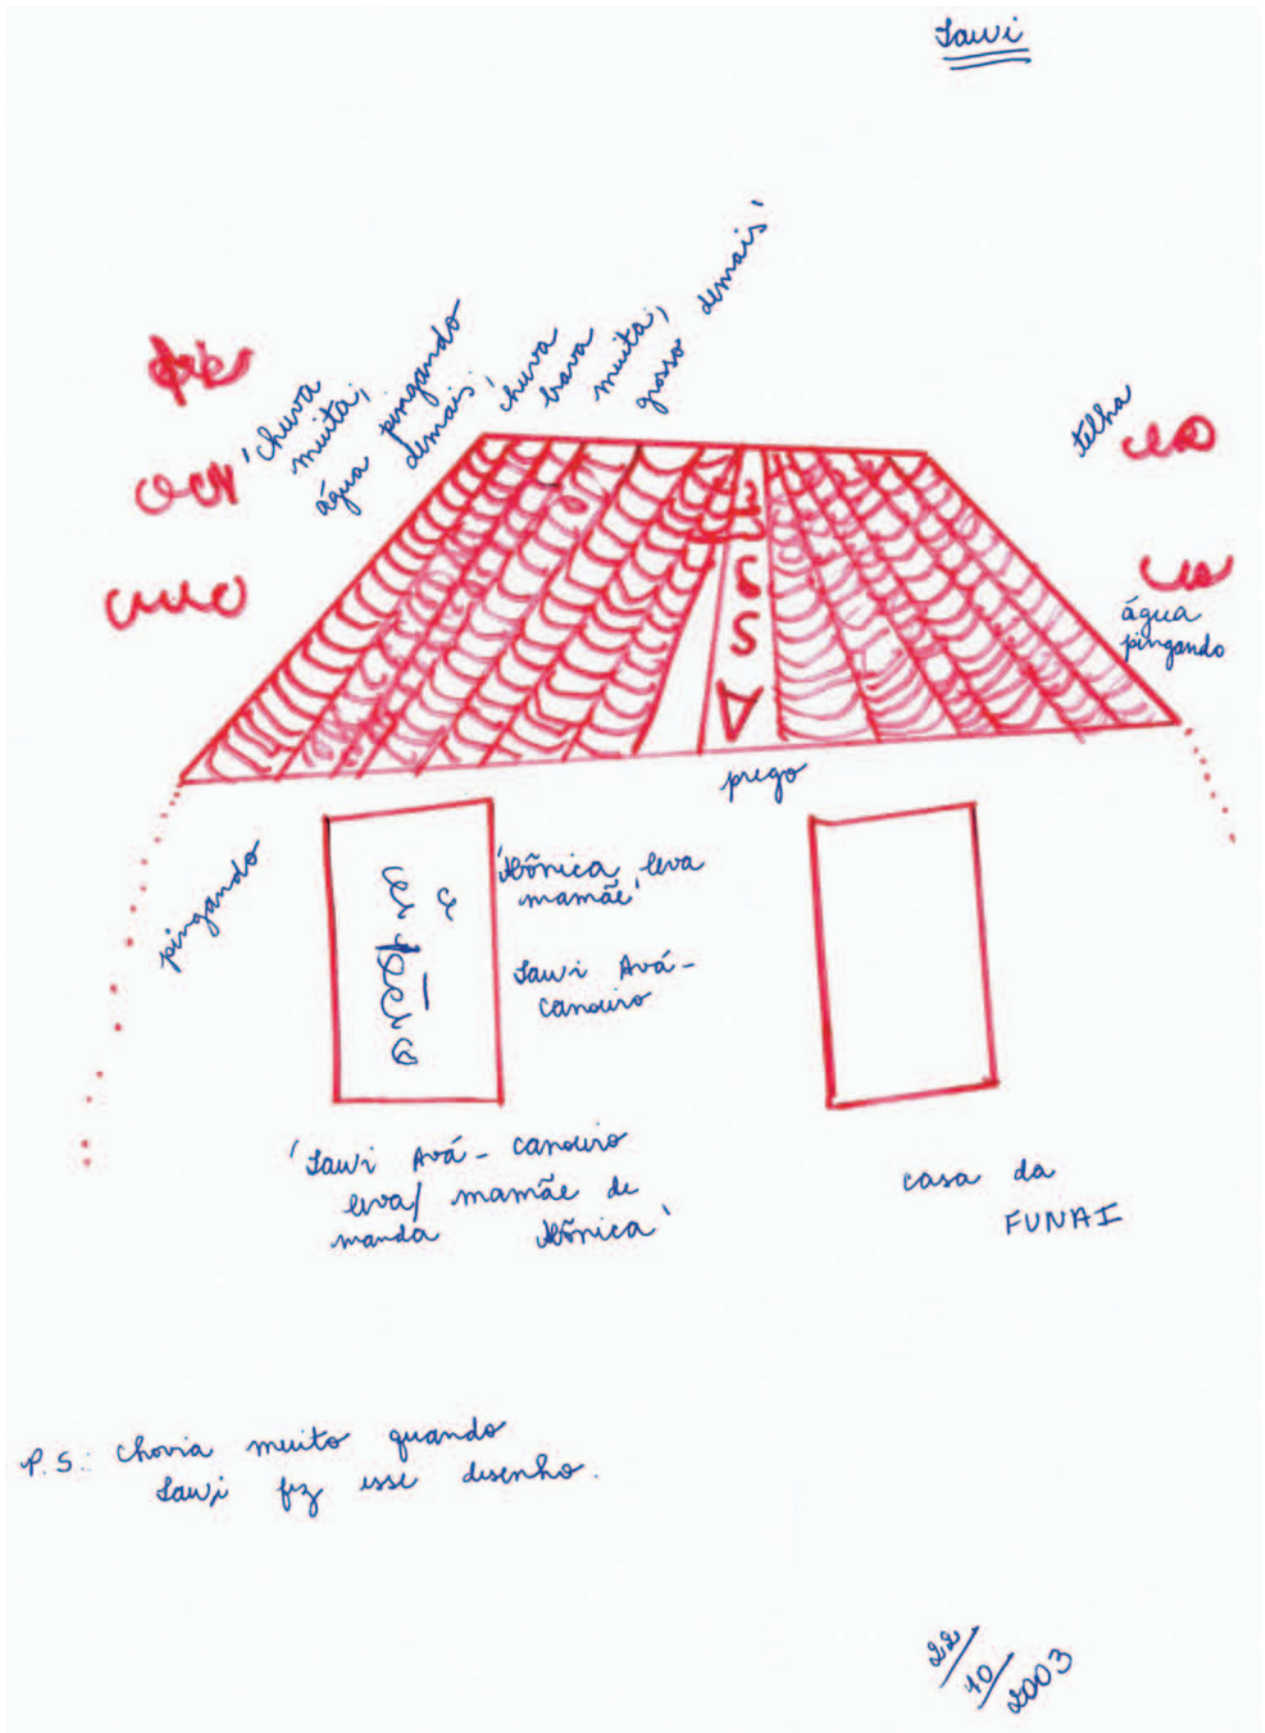 Iawi
'chuva
muita,
água pingando
demais.'
'chuva
brava
muita,
grosso demais'
telha
água
pingando
prego
pingando
'Mônica, leva
mamãe'
Iawi Avá-
canoeiro
'Iawi Avá-canoeiro
leva/ mamãe de
manda Mônica'
casa da
FUNAI
P.S.: Chovia muito quando
Iawi fez esse desenho.
22/10/2003